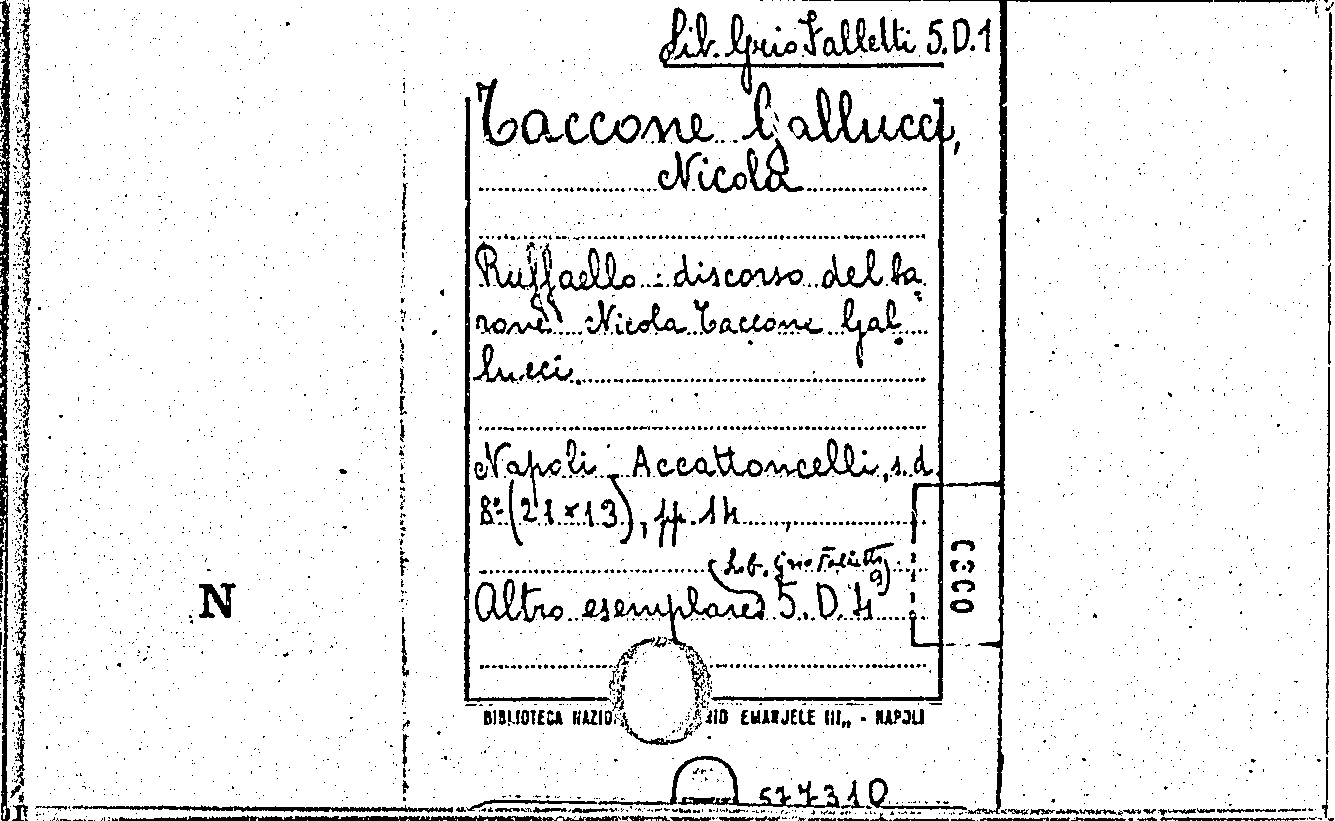 Lib. Grio Falletti 5.D.1
Taccone Gallucci,
Nicola
Ruffaello : discorso del ba-
rone Nicola Taccone Gal-
lucci.
Napoli - Accattoncelli, s.d.
8º (21x13), pp. 14
(Lib. Grio Falletti
Altro esemplare 5.D.4 9)
N
BIBLIOTECA NAZIO RIO EMANUELE III„ - NAPOLI
577310